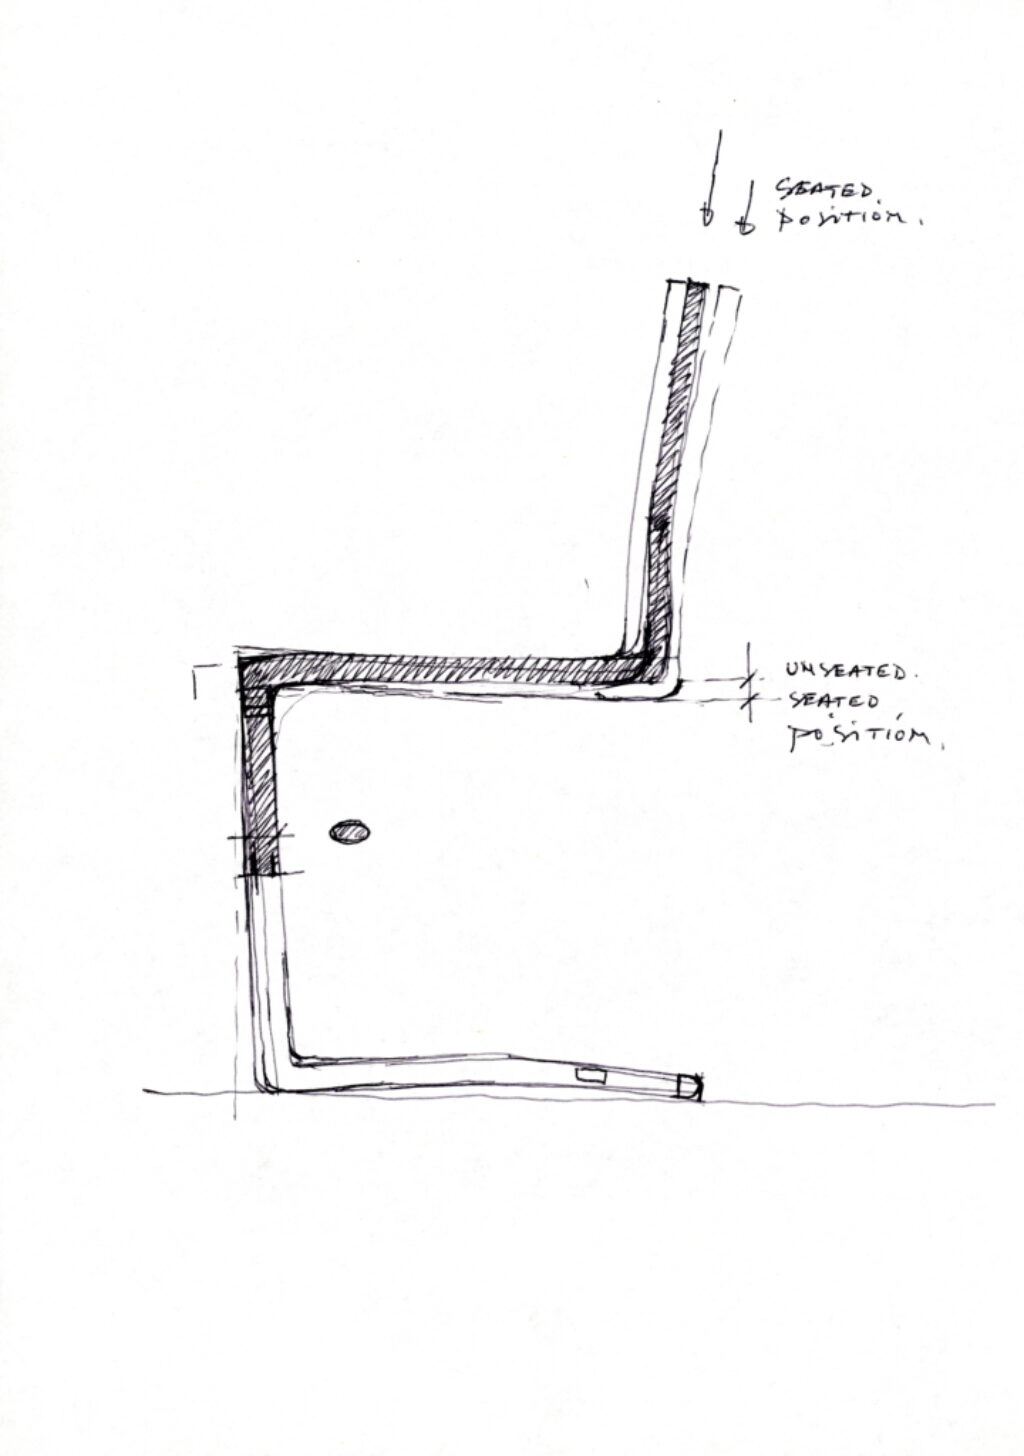 SEATED.
POSITION.
UNSEATED.
SEATED
POSITION.